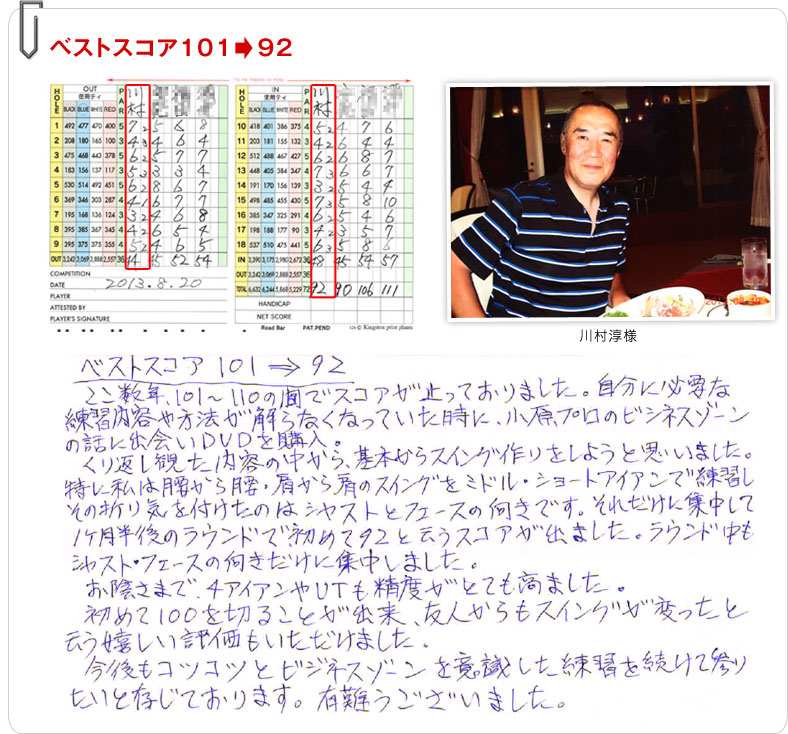 ベストスコア101➡92
HOLE OUT 使用ティ BLACK BLUE WHITE RED PAR 川村
1 492 477 470 400 5 7 2 5 6 8
2 208 180 165 100 3 4 3 4 6 4
3 475 468 443 378 5 6 2 5 7 7
4 183 156 137 117 3 5 3 3 3 4
5 530 514 492 451 5 6 2 8 6 7
6 369 346 303 287 4 4 1 6 7 7
7 195 168 136 124 3 3 2 4 6 8
8 395 385 367 345 4 4 2 6 5 4
9 395 375 375 355 4 5 2 4 6 5
OUT 3,242 3,069 2,888 2,557 36 44 45 52 54
COMPETITION
DATE 2013.8.20
PLAYER
ATTESTED BY
PLAYER'S SIGNATURE
HOLE IN 使用ティ BLACK BLUE WHITE RED PAR 川村
10 418 401 386 375 4 5 2 4 7 6
11 203 181 155 132 3 4 2 6 4 4
12 512 488 467 427 5 6 2 6 8 7
13 448 405 384 347 4 7 3 6 6 7
14 191 170 156 139 3 3 2 5 4 4
15 498 485 455 430 5 7 3 5 8 10
16 385 347 325 291 4 6 2 5 4 6
17 198 188 177 90 3 4 2 3 5 7
18 537 510 475 441 5 6 3 5 8 6
IN 3,390 3,175 2,980 2,672 36 48 45 54 57
OUT 3,242 3,069 2,888 2,557 36
TOTAL 6,632 6,244 5,868 5,229 72 92 90 106 111
HANDICAP
NET SCORE
Read Bar PAT.PEND © Kingston print plaza
川村淳様
ベストスコア 101 ⇒ 92
ここ数年、101～110の間でスコアが止っておりました。自分に必要な
練習内容や方法が解らなくなっていた時に、小原プロのビジネスゾーン
の話に出会いDVDを購入。
くり返し観た内容の中から、基本からスイング作りをしようと思いました。
特に私は腰から腰・肩から肩のスイングをミドル・ショートアイアンで練習し
その折り気を付けたのはシャストとフェースの向きです。それだけに集中して
1ヶ月半後のラウンドで初めて92と云うスコアが出ました。ラウンド中も
シャスト・フェースの向きだけに集中しました。
お陰さまで、4アイアンやUTも精度がとても高ました。
初めて100を切ることが出来、友人からもスイングが変ったと
云う嬉しい評価もいただけました。
今後もコツコツとビジネスゾーンを意識した練習を続けて参り
たいと存じております。有難うございました。